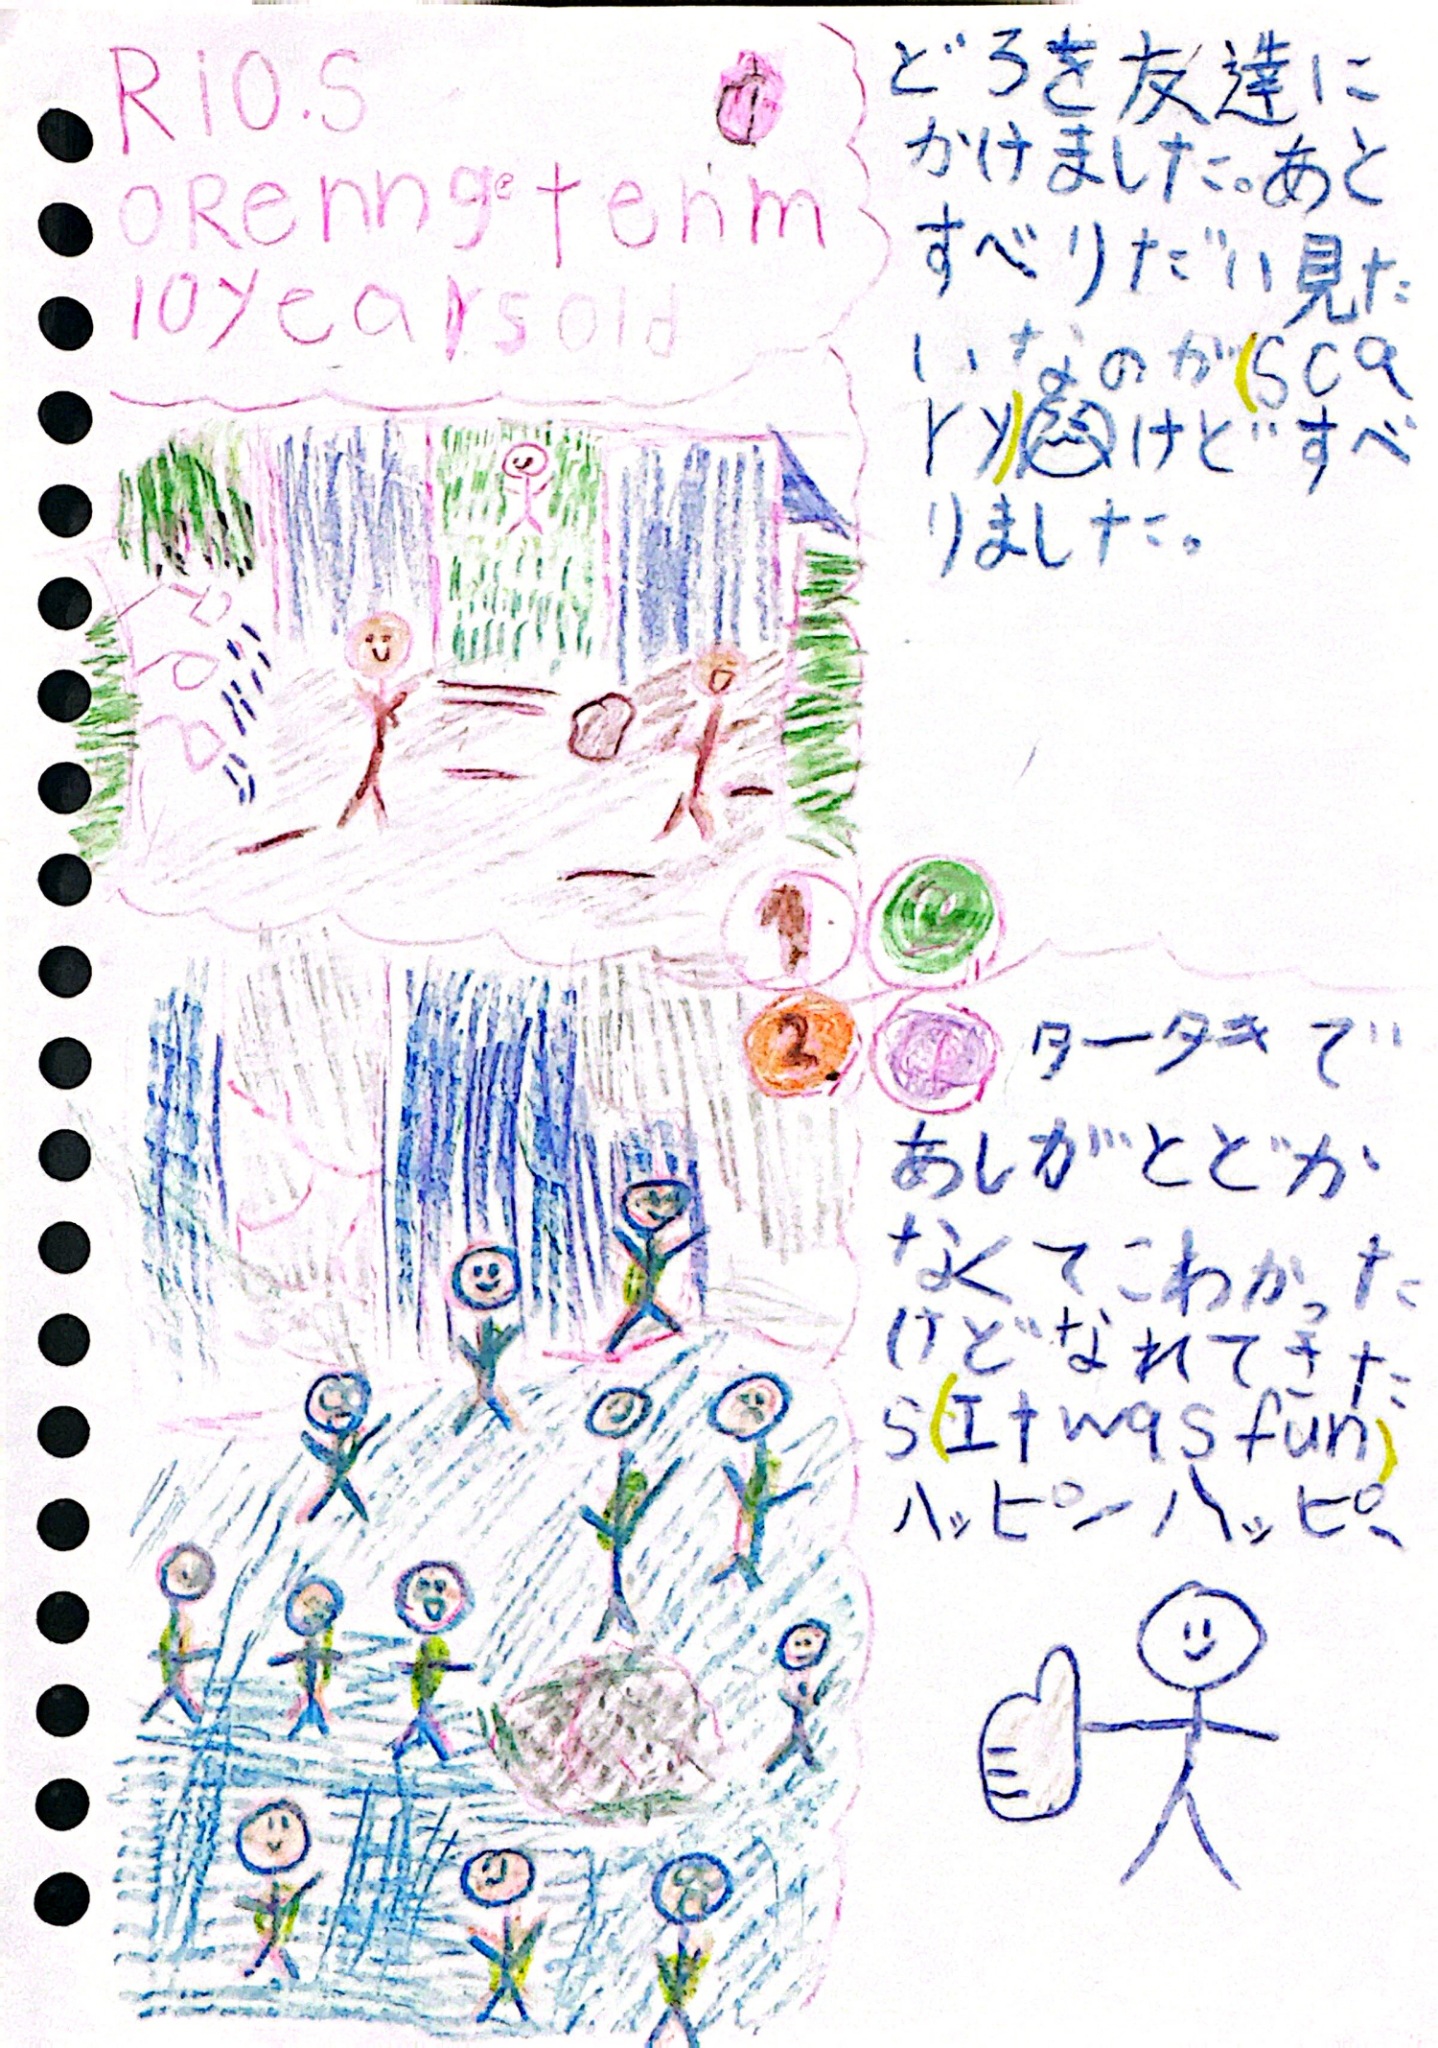 RIO.S
ORenngetenm
10years old
どろを友達に
かけました。あと
すべりだい見た
いなのが(sca
ry)けどすべ
りました。
1
2
タータキで
あしがとどか
なくてこわかった
けどなれてきた
S(It was fun)
ハッピーハッピー